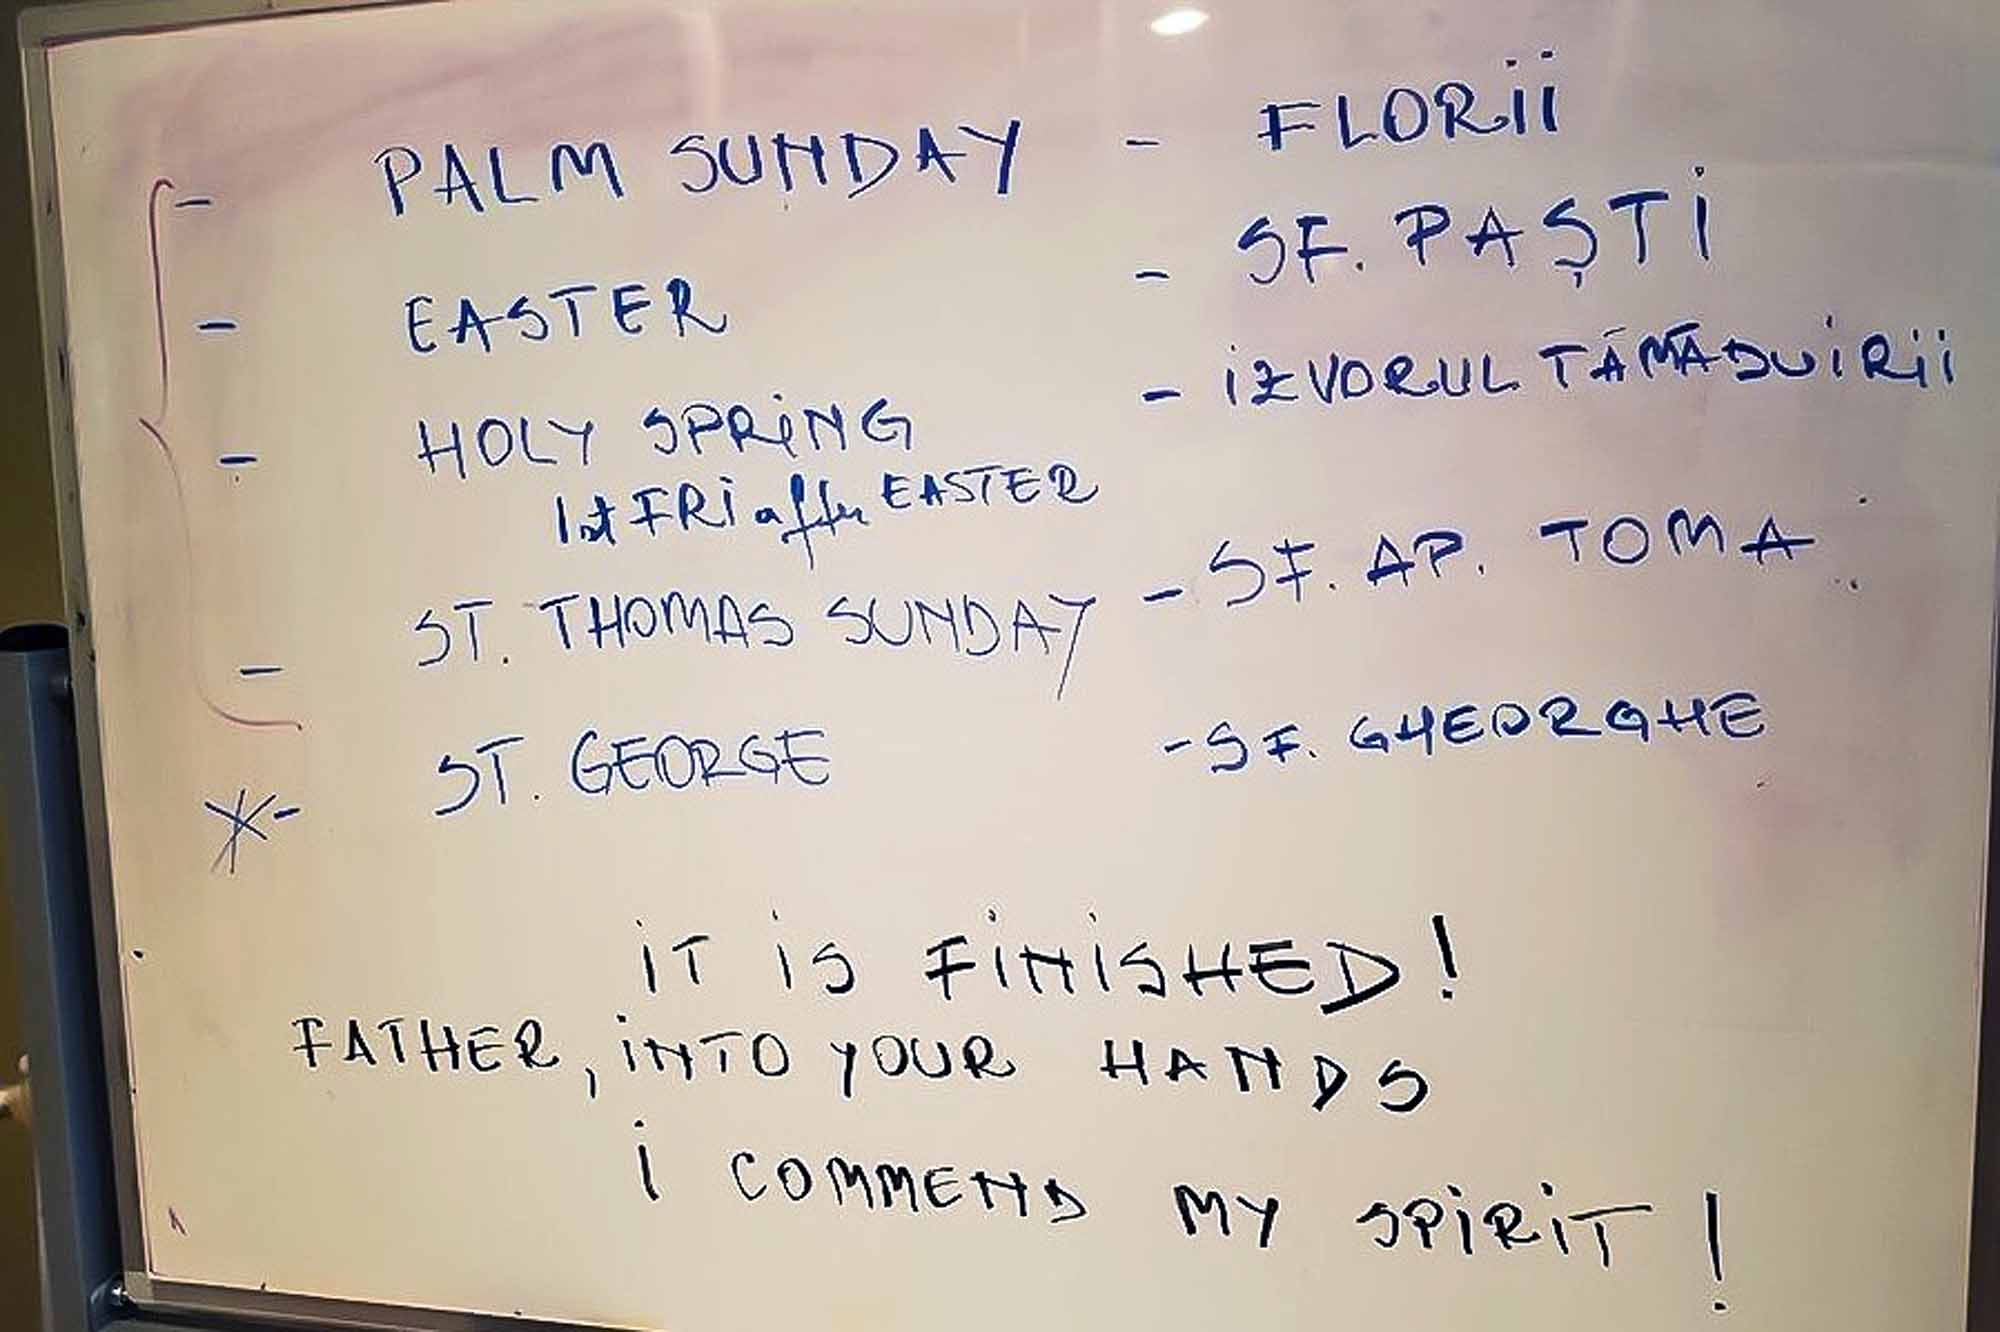 - PALM SUNDAY - FLORII
- EASTER - SF. PAȘTI
- HOLY SPRING - IZVORUL TĂMĂDUIRII
1st FRI after EASTER
- ST. THOMAS SUNDAY - SF. AP. TOMA
*- ST. GEORGE - SF. GHEORGHE
IT IS FINISHED!
FATHER, INTO YOUR HANDS
I COMMEND MY SPIRIT!